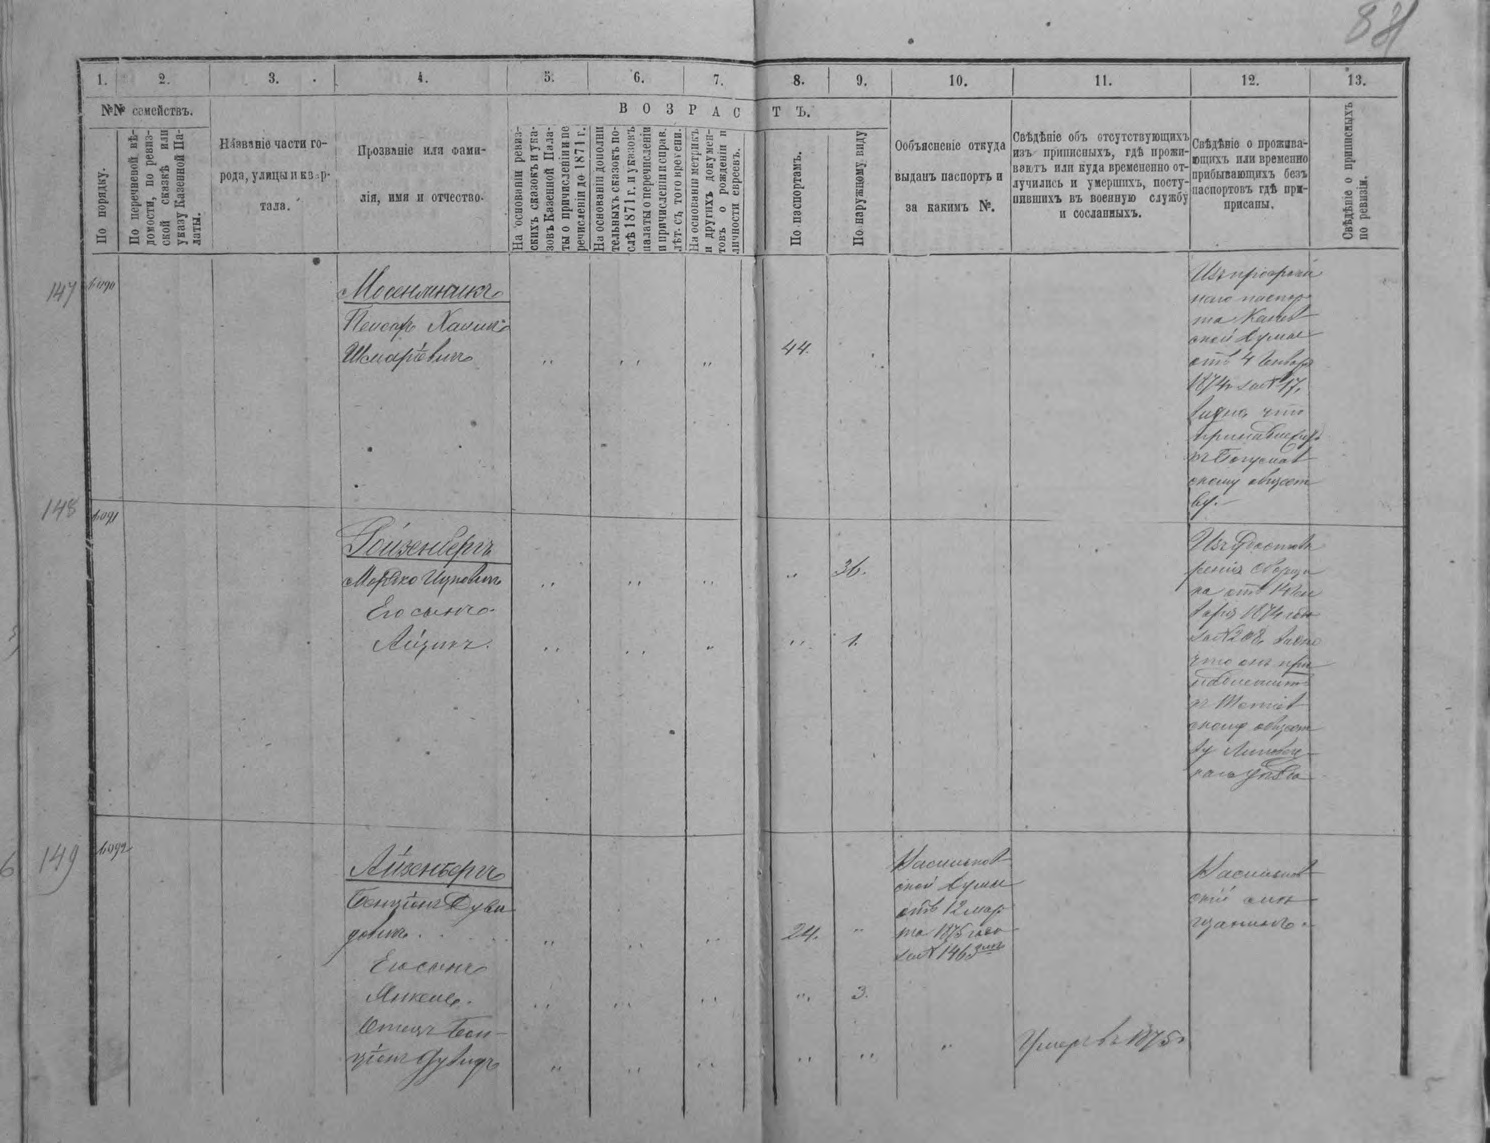 88
1. 2. 3. 4. 5. 6. 7. 8. 9. 10. 11. 12. 13.
№№ семействъ.
В О З Р А С Т Ъ.
По порядку.
По перечневой вѣ-
домости, по ревиз-
ской сказкѣ или
указу Казенной Па-
латы.
Названіе части го-
рода, улицы и квар-
тала.
Прозваніе или фами-
лія, имя и отчество.
На основаніи ревиз-
скихъ сказокъ и ука-
зовъ Казенной Пала-
ты о причисленіи и пе
речисленіи до 1871 г.
На основаніи дополни
тельныхъ сказокъ по-
слѣ 1871 г. и указовъ
палаты о перечисленіи
и причисленіи и справ.
лѣт. съ того времени.
На основаніи метрикъ
и другихъ докумен-
товъ о рожденіи и
личности евреевъ.
По паспортамъ.
По наружному виду
Объясненіе откуда
выданъ паспортъ и
за какимъ №.
Свѣдѣніе объ отсутствующихъ
изъ приписныхъ, гдѣ прожи-
ваютъ или куда временно от-
лучились и умершихъ, посту-
пившихъ въ военную службу
и сосланныхъ.
Свѣдѣніе о прожива-
ющихъ или временно
прибывающихъ безъ
паспортовъ гдѣ при-
писаны.
Свѣдѣніе о приписныхъ
по ревизіи.
147
6090
Шмаріевичъ
44.
Изъ
паспор-
та
ской Думы
отъ 4 Января
1874 г. за № 17.
видно что
къ Богуслав
скому общест
ву.
148
6091
Гойзенбергъ
Мордко Ицковичъ
36.
Его сынъ
Айзикъ.
1.
Изъ
отъ 14
1874 года
за № видно
что онъ при
скому общест
ву Липовец-
каго уѣзда
149
6092
Айзенбергъ
Бенціонъ Дуви
довичъ
24.
Его сынъ
Янкель.
3.
Отецъ Бен-
ціона Дувидъ
Васильков
ской Думы
отъ 12 мар
та 1875 года
за № 1463
Умеръ въ 1875 г.
Васильков
скій мѣ
щанинъ.